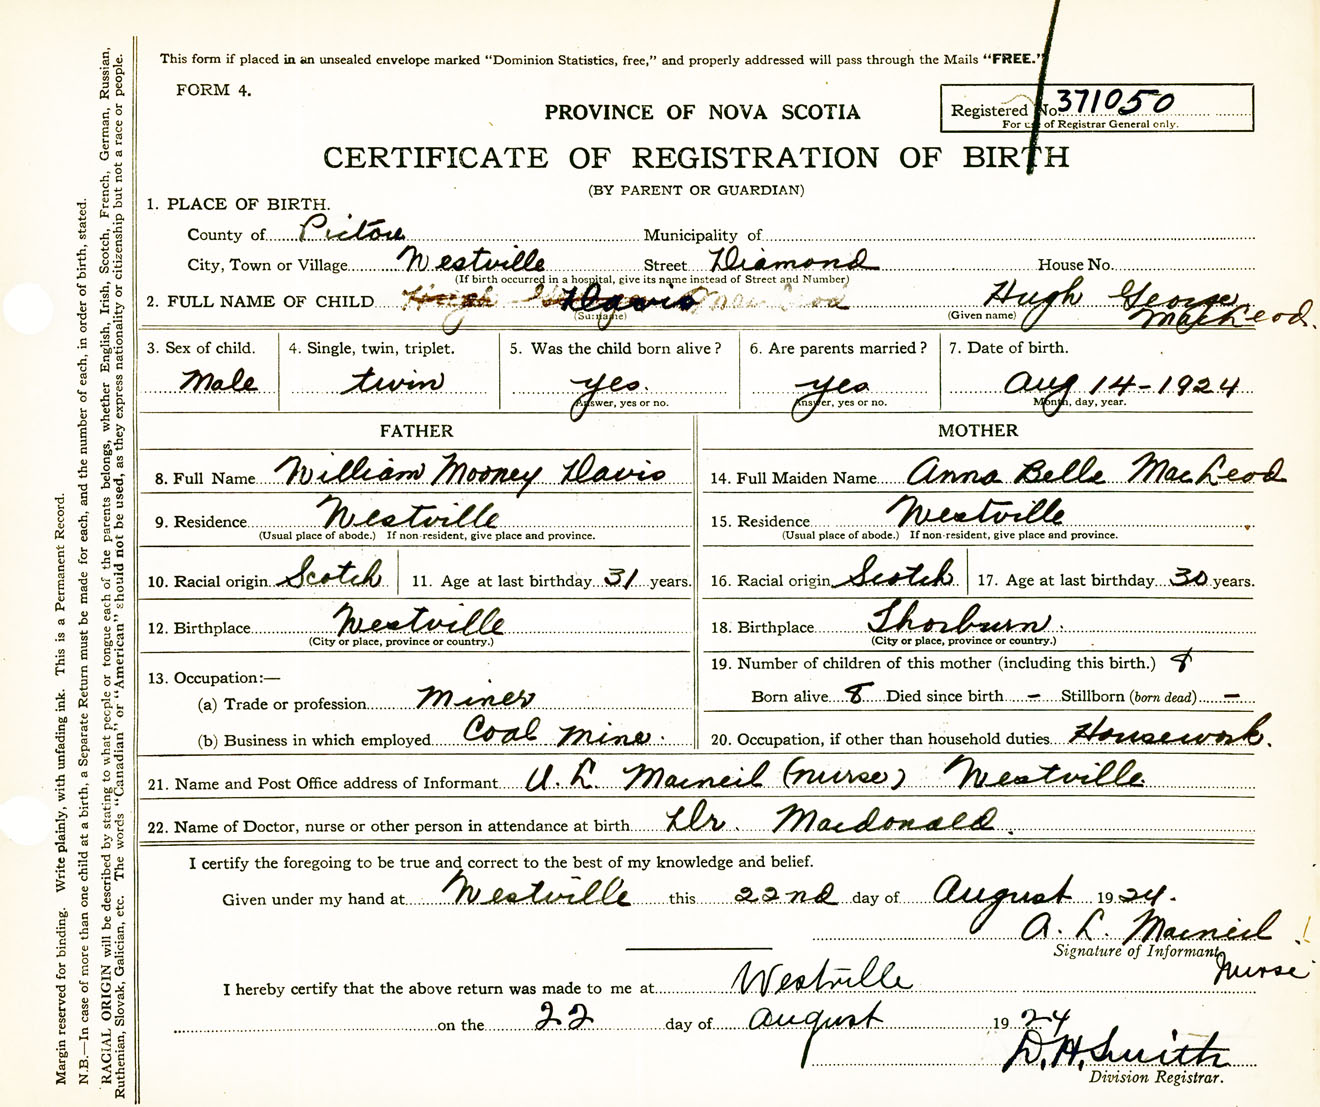 This form if placed in an unsealed envelope marked "Dominion Statistics, free," and properly addressed will pass through the Mails "FREE."
FORM 4.
PROVINCE OF NOVA SCOTIA
Registered No. 371050
For use of Registrar General only.
CERTIFICATE OF REGISTRATION OF BIRTH
(BY PARENT OR GUARDIAN)
1. PLACE OF BIRTH.
County of Pictou Municipality of
City, Town or Village Westville Street Diamond House No.
(If birth occurred in a hospital, give its name instead of Street and Number)
2. FULL NAME OF CHILD Hugh Davis MacLeod Hugh George MacLeod.
(Surname) (Given name)
3. Sex of child. 4. Single, twin, triplet. 5. Was the child born alive? 6. Are parents married? 7. Date of birth.
Male twin yes. yes Aug 14-1924
Answer, yes or no. Answer, yes or no. Month, day, year.
FATHER MOTHER
8. Full Name William Mooney Davis 14. Full Maiden Name Anna Belle MacLeod
9. Residence Westville 15. Residence Westville
(Usual place of abode.) If non-resident, give place and province. (Usual place of abode.) If non-resident, give place and province.
10. Racial origin Scotch 11. Age at last birthday 31 years. 16. Racial origin Scotch 17. Age at last birthday 30 years.
12. Birthplace Westville 18. Birthplace Thorburn.
(City or place, province or country.) (City or place, province or country.)
13. Occupation:— 19. Number of children of this mother (including this birth.) 8
(a) Trade or profession Miner Born alive 8 Died since birth – Stillborn (born dead) –
(b) Business in which employed Coal Mine. 20. Occupation, if other than household duties Housework.
21. Name and Post Office address of Informant A. L. Macneil (nurse) Westville
22. Name of Doctor, nurse or other person in attendance at birth Dr. Macdonald.
I certify the foregoing to be true and correct to the best of my knowledge and belief.
Given under my hand at Westville this 22nd day of August 1924.
A. L. Macneil
Signature of Informant
Nurse
I hereby certify that the above return was made to me at Westville
on the 22 day of August 1924
D. H. Smith
Division Registrar.
Margin reserved for binding. Write plainly, with unfading ink. This is a Permanent Record.
N.B.—In case of more than one child at a birth, a Separate Return must be made for each, and the number of each, in order of birth, stated.
RACIAL ORIGIN will be described by stating to what people or tongue each of the parents belongs, whether English, Irish, Scotch, French, German, Russian,
Ruthenian, Slovak, Galician, etc. The words "Canadian" or "American" should not be used, as they express nationality or citizenship but not a race or people.